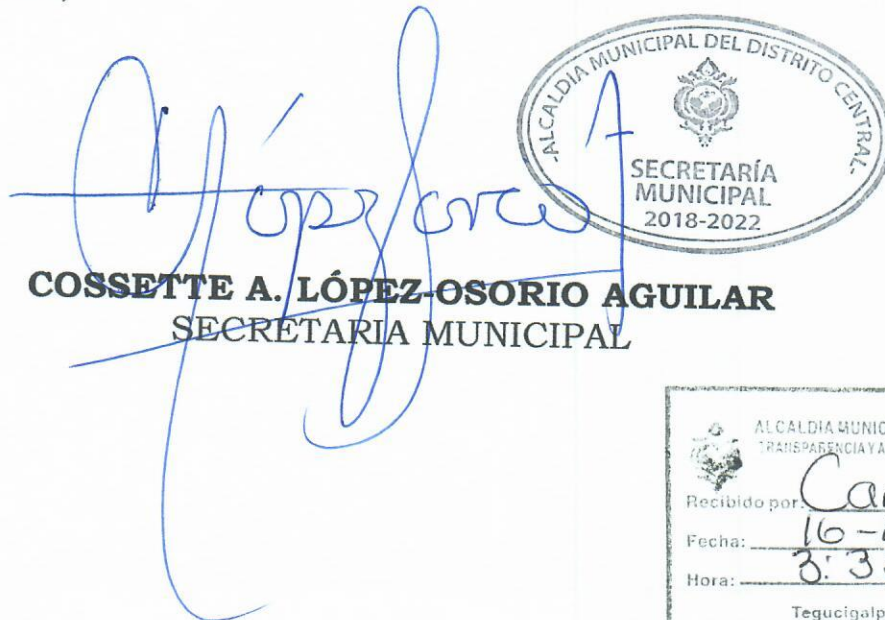 -ALCALDIA MUNICIPAL DEL DISTRITO CENTRAL-
SECRETARÍA
MUNICIPAL
2018-2022
COSSETTE A. LÓPEZ-OSORIO AGUILAR
SECRETARIA MUNICIPAL
ALCALDIA MUNIC
TRANSPARENCIA Y A
Recibido por: Ca
Fecha: 16-
Hora: 3:3
Tegucigalp